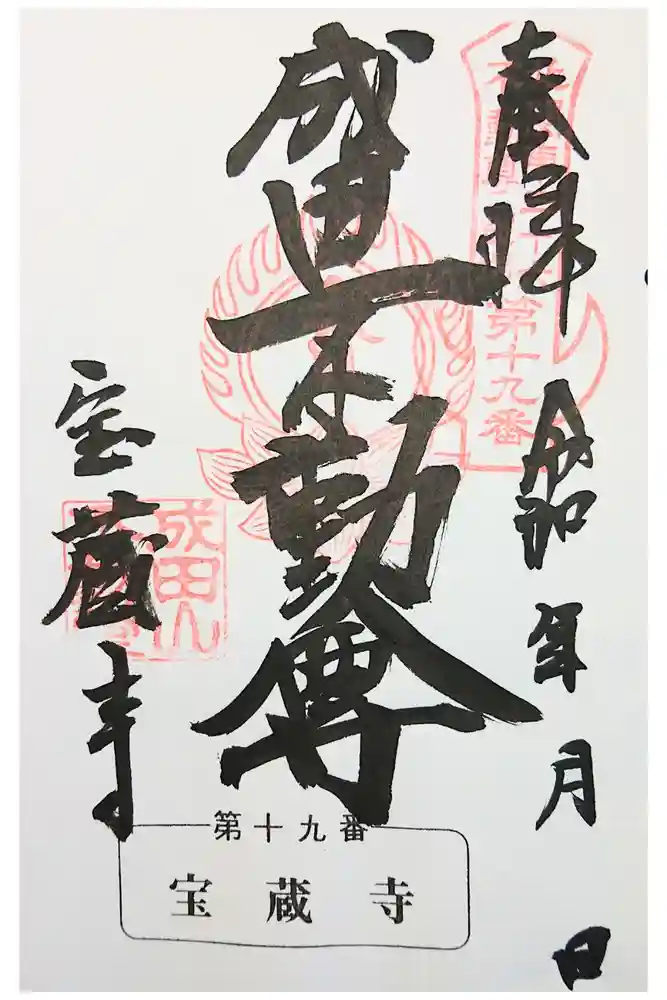 奉拝
令和 年 月 日
第十九番
成田不動尊
成田山
宝蔵寺
第十九番
宝蔵寺